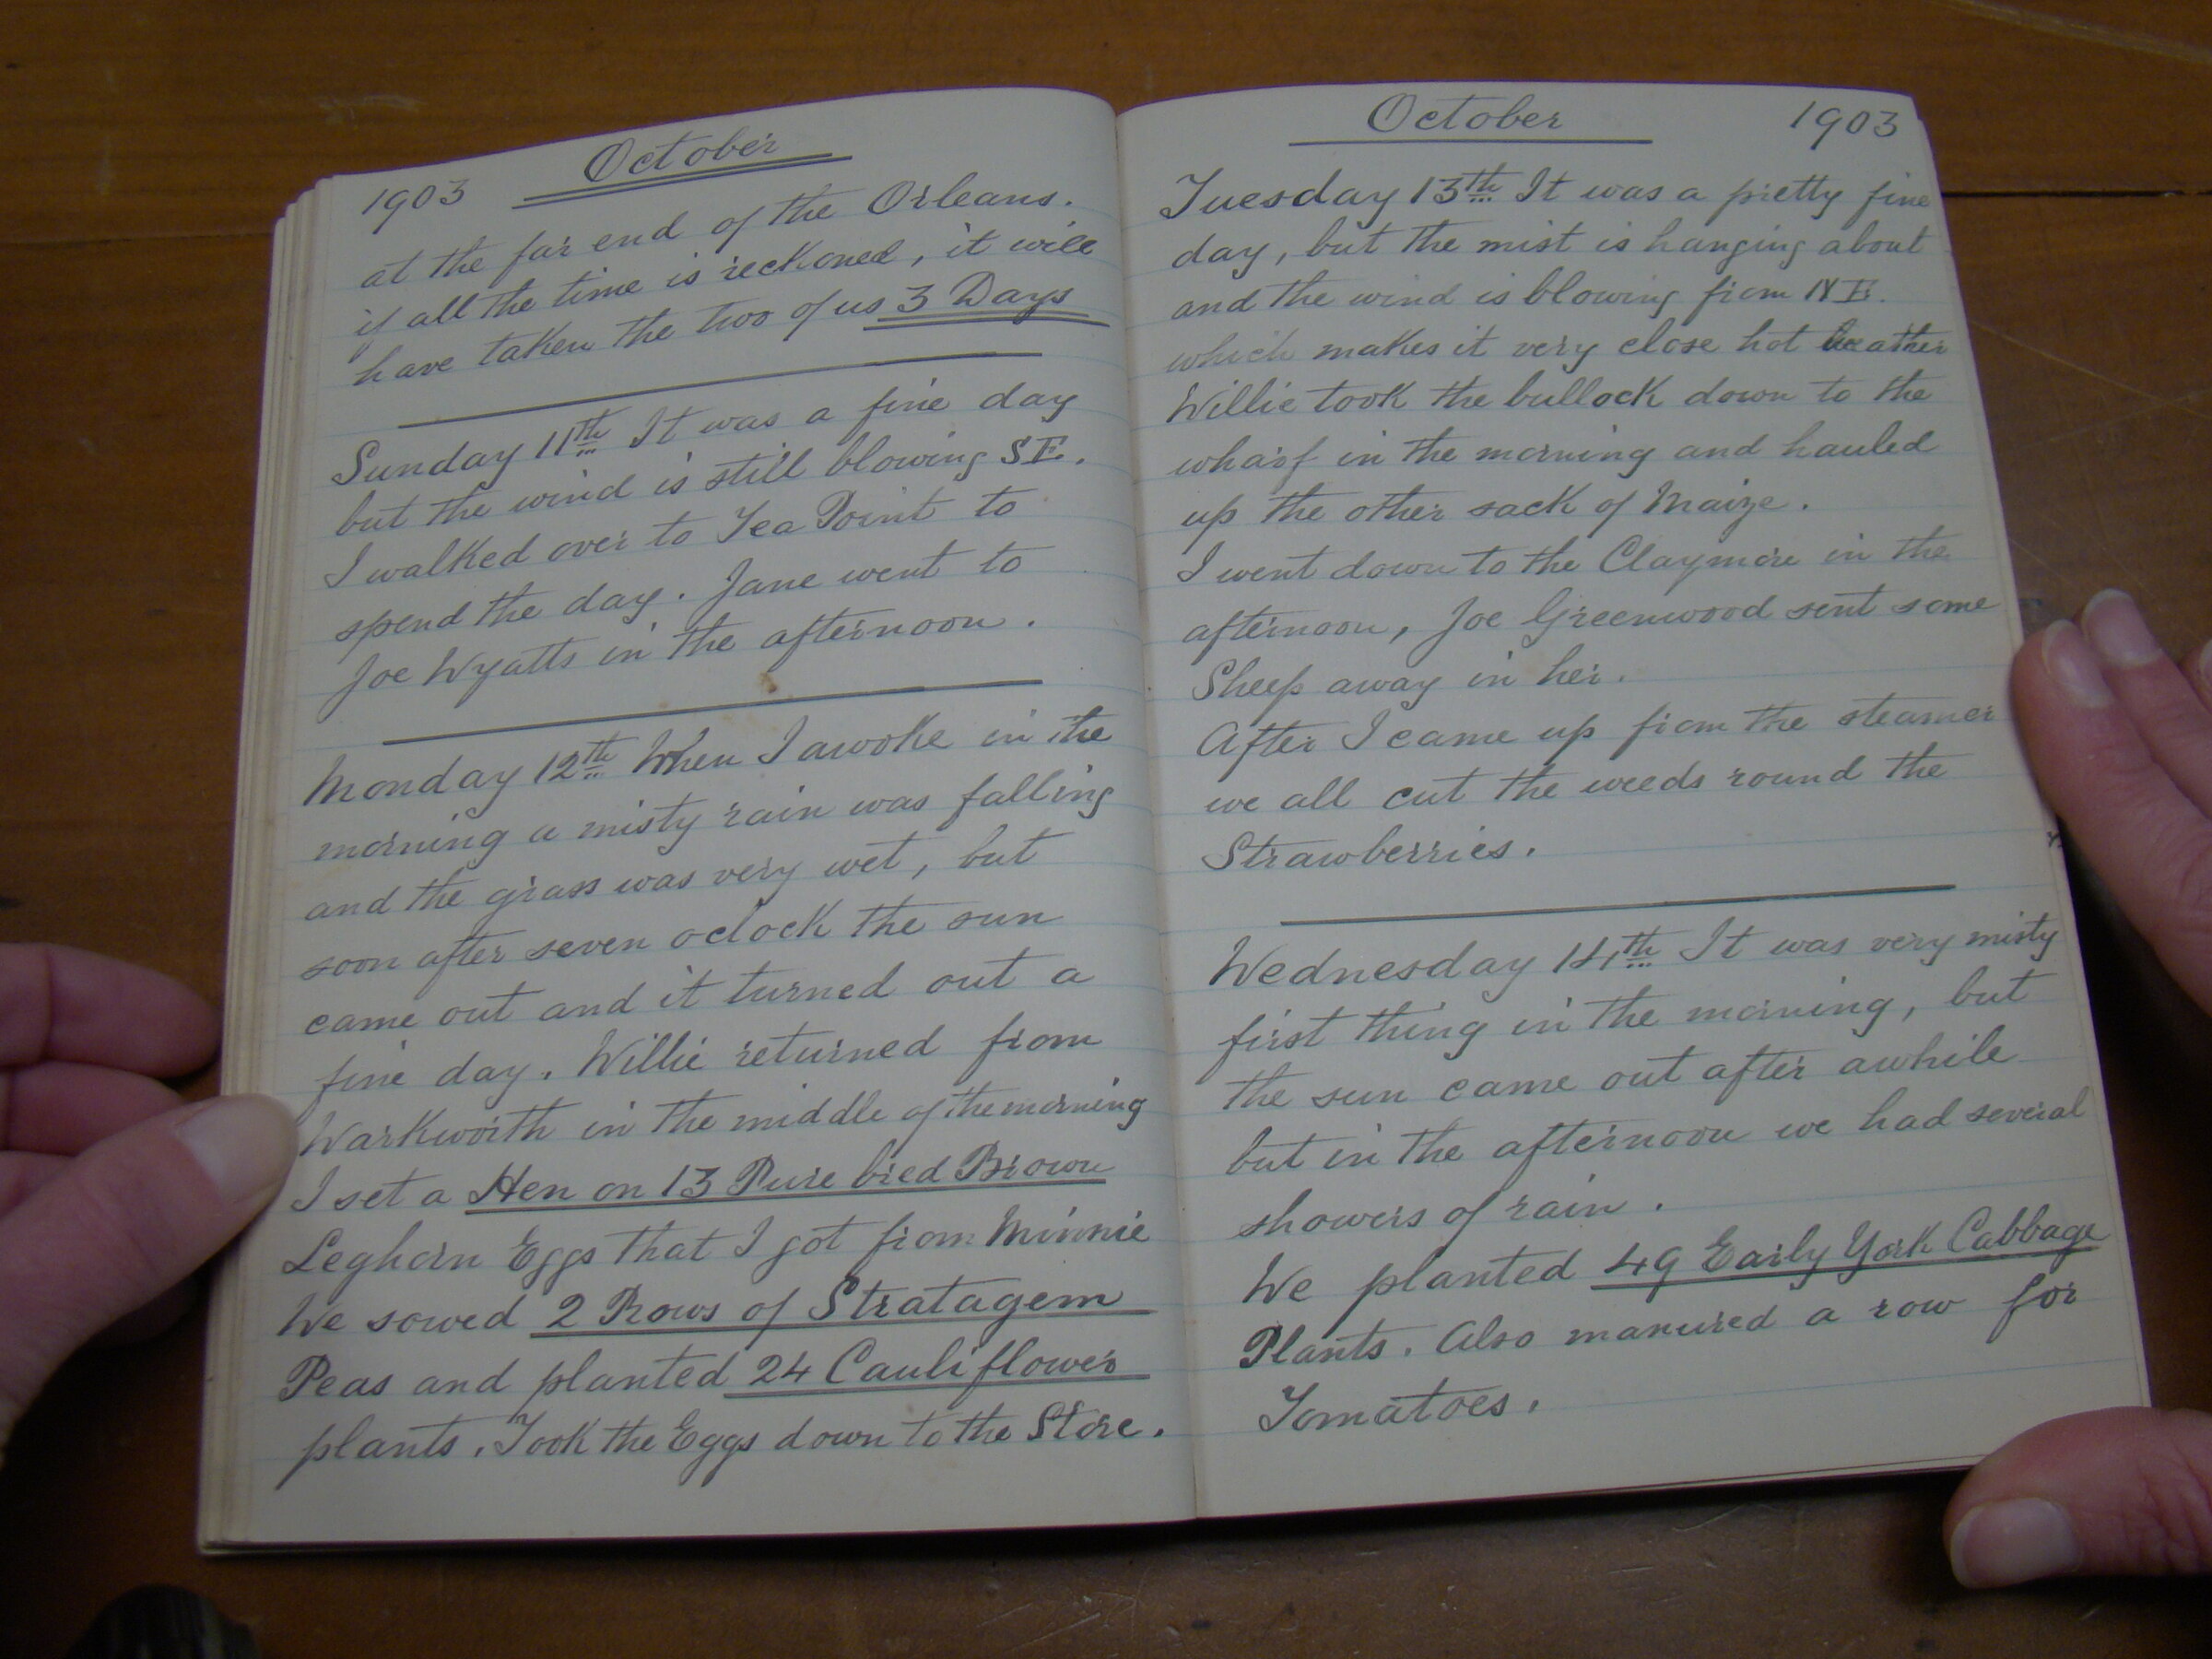 1903 October
at the far end of the Orleans.
if all the time is reckoned, it will
have taken the two of us 3 Days
Sunday 11th It was a fine day
but the wind is still blowing SE.
I walked over to Tea Point to
spend the day. Jane went to
Joe Wyatts in the afternoon.
Monday 12th When I awoke in the
morning a misty rain was falling
and the grass was very wet, but
soon after seven oclock the sun
came out and it turned out a
fine day. Willie returned from
Warkworth in the middle of the morning
I set a Hen on 13 Pure bred Brown
Leghorn Eggs that I got from Minnie
We sowed 2 Rows of Stratagem
Peas and planted 24 Cauliflower
plants. Took the Eggs down to the Store.
October 1903
Tuesday 13th It was a pretty fine
day, but the mist is hanging about
and the wind is blowing from NE.
which makes it very close hot weather
Willie took the bullock down to the
wharf in the morning and hauled
up the other sack of Maize.
I went down to the Claymore in the
afternoon, Joe Greenwood sent some
Sheep away in her.
After I came up from the steamer
we all cut the weeds round the
Strawberries.
Wednesday 14th It was very misty
first thing in the morning, but
the sun came out after awhile
but in the afternoon we had several
showers of rain.
We planted 49 Early York Cabbage
Plants. Also manured a row for
Tomatoes.